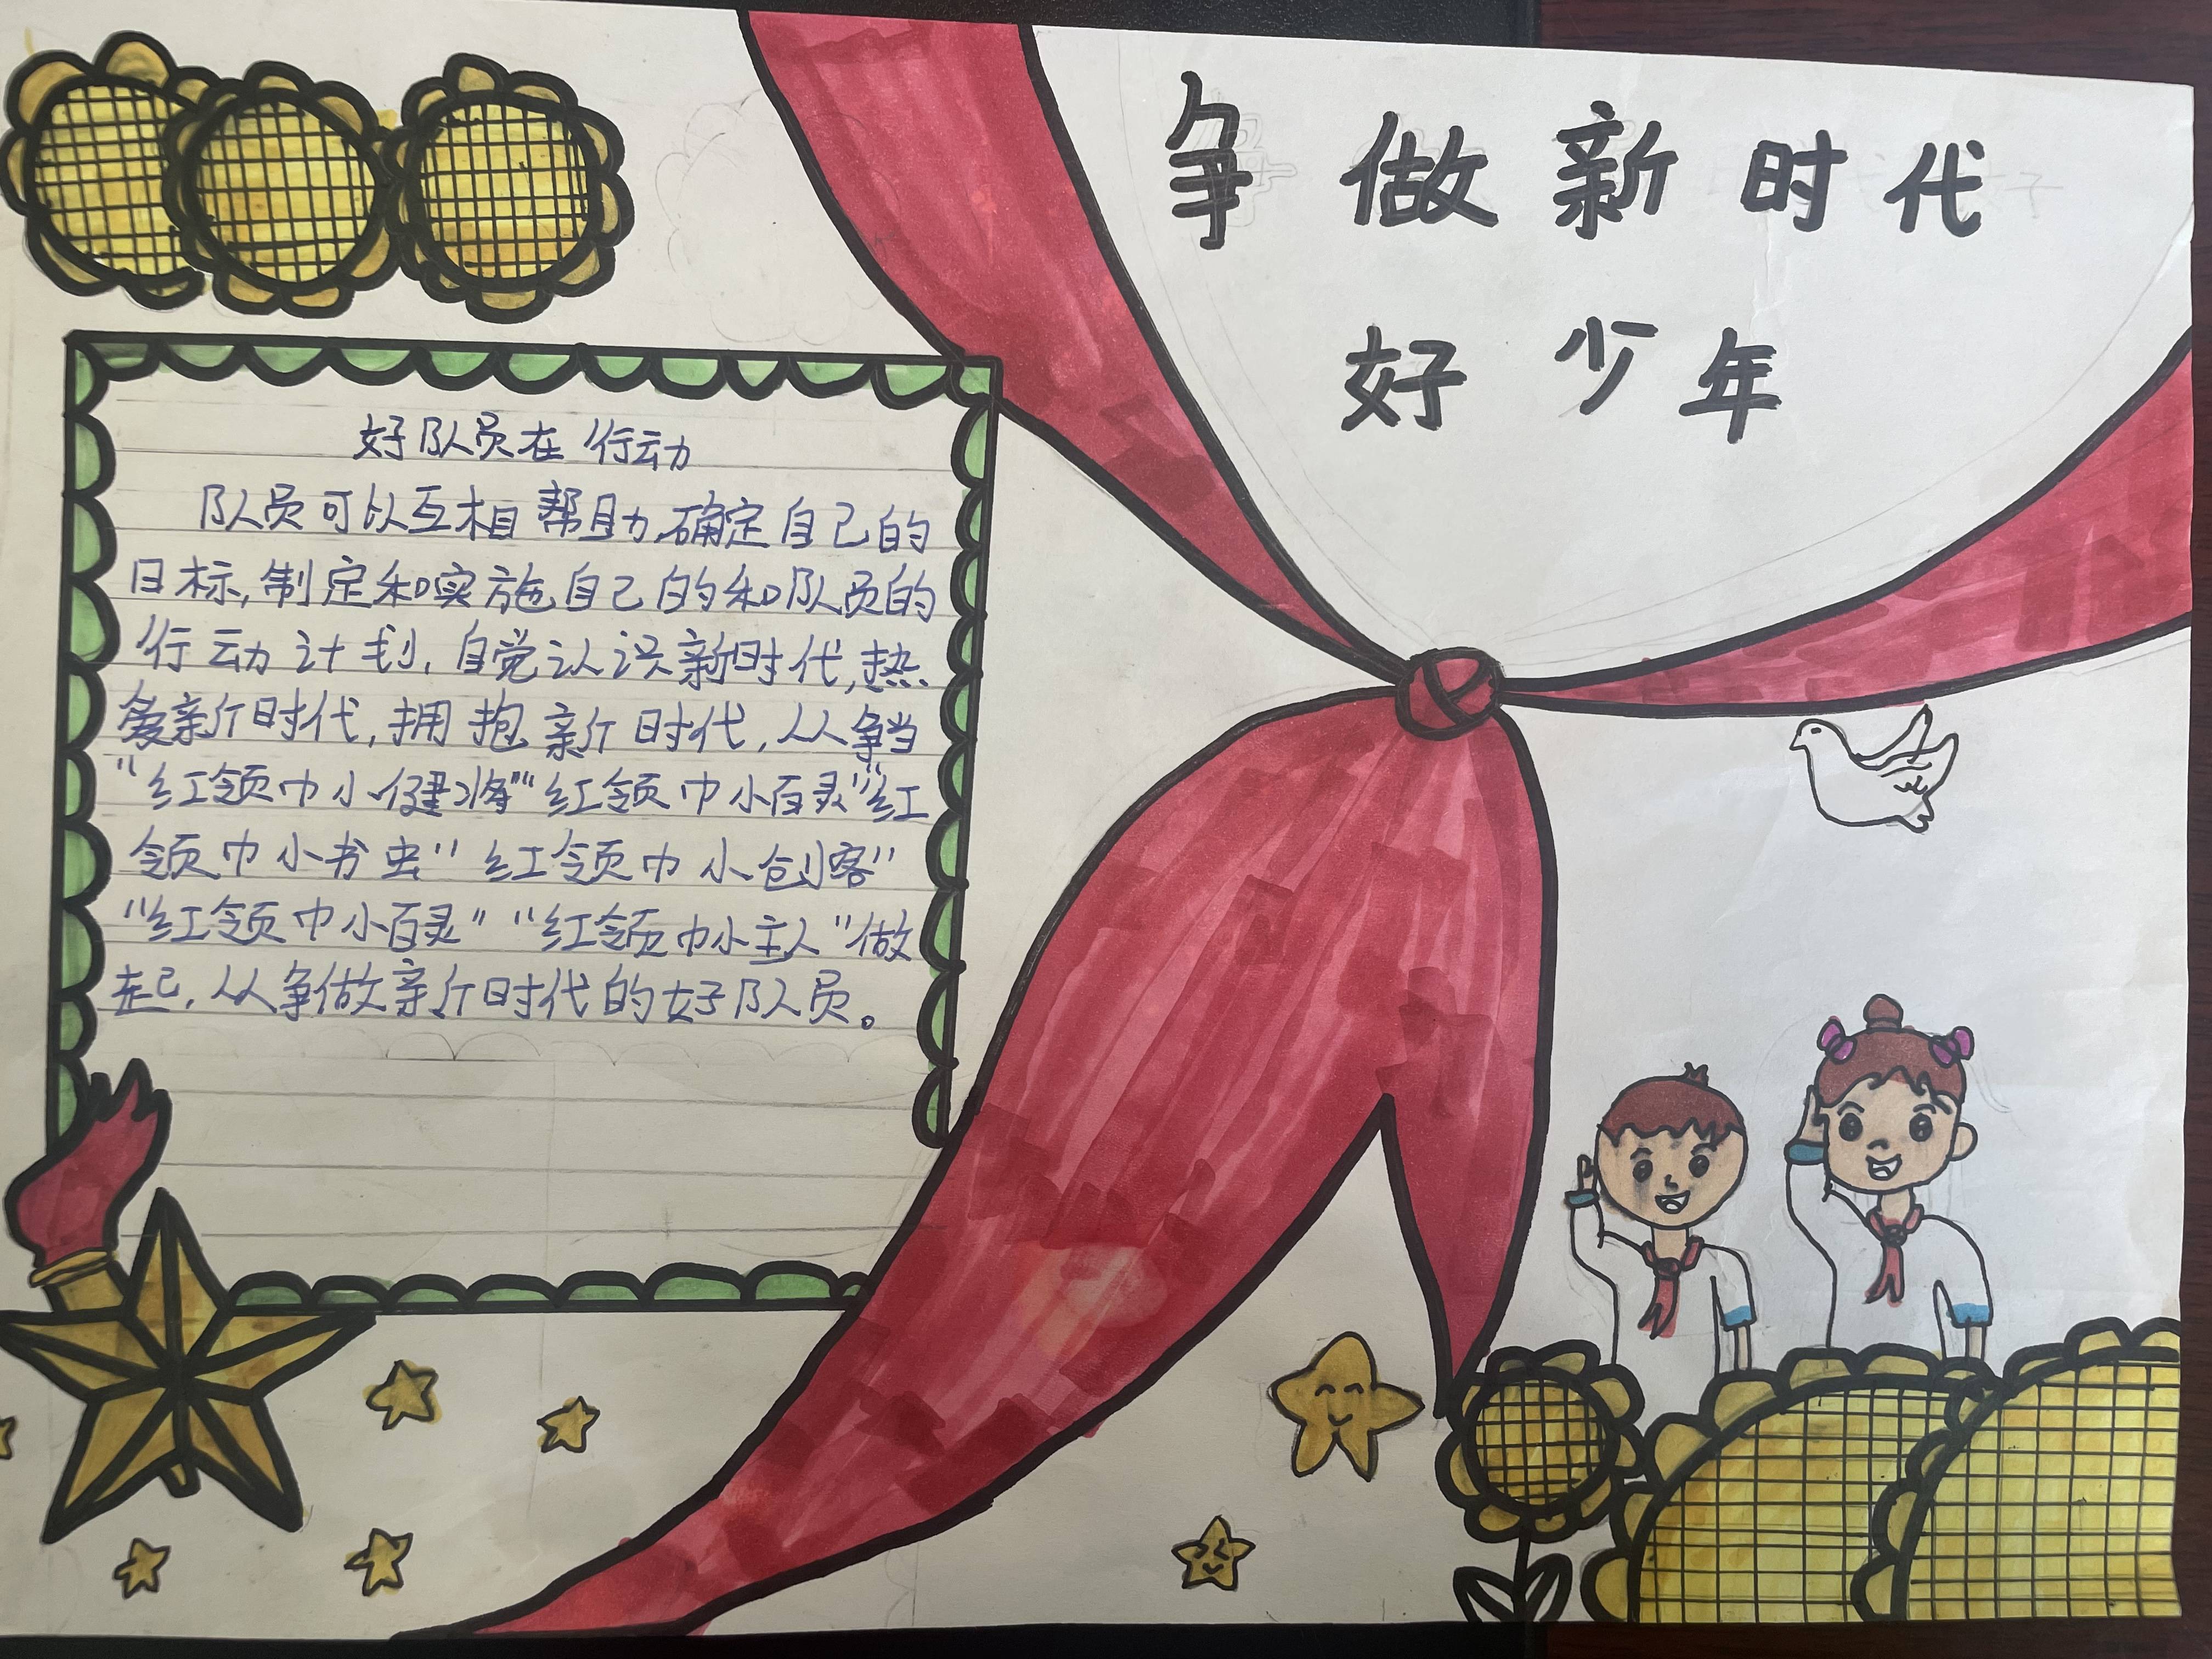 争做新时代
好少年
好队员在行动
队员可以互相帮助,确定自己的
目标,制定和实施自己的和队员的
行动计划,自觉认识新时代,热
爱新时代,拥抱新时代,从争当
“红领巾小健将”“红领巾小百灵”“红
领巾小书虫”“红领巾小创客”
“红领巾小百灵”“红领巾小主人”做
起,从争做新时代的好队员。